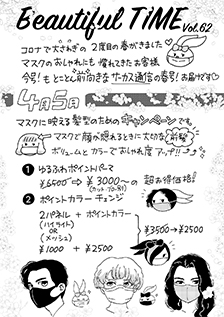 Beautiful TiME Vol.62
コロナで大さわぎの2度目の春がきました♥
マスクのおしゃれにも慣れてきたお客様
今号！もとことん前向きなサーカス通信の春号！お届けです♡
4月5月
マスクに映える髪型のためのキャンペーンです。
マスクで顔が隠れるときに大切な前髪
ボリュームとカラーでおしゃれ度アップ!!
① ゆるふわポイントパーマ
¥6500 ⇒ ¥3000〜の超お得価格!
(カット・ブロー別)
② ポイントカラーチェンジ
2パネル + ポイントカラー
(ハイライト)
OR
(メッシュ)
¥1000 + ¥2500
¥3500→¥2500